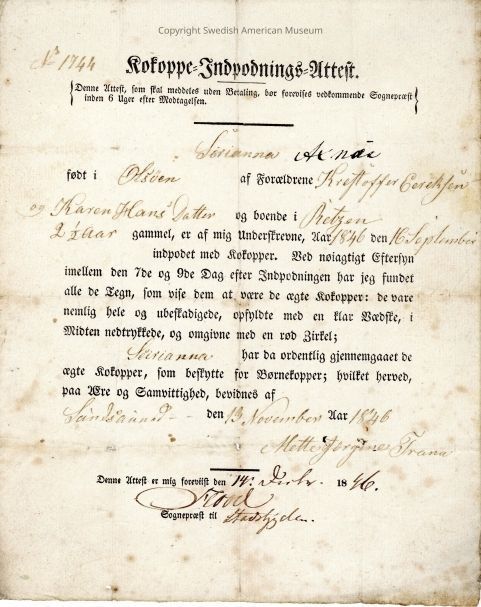 Copyright Swedish American Museum
No 1744
Kokoppe-Indpodnings-Attest.
Denne Attest, som skal meddeles uden Betaling, bør forevises vedkommende Sognepræst
inden 6 Uger efter Modtagelsen.
Serianna
født i Olsøen af Forældrene Kristoffer Eericksen
og Karen Hans Datter og boende i Retzen
2½ Aar gammel, er af mig Underskrevne, Aar 1846 den 16 September
indpodet med Kokopper. Ved nøiagtigt Eftersyn
imellem den 7de og 9de Dag efter Indpodningen har jeg fundet
alle de Tegn, som vise dem at være de ægte Kokopper: de vare
nemlig hele og ubeskadigede, opfyldte med en klar Vædske, i
Midten nedtrykkede, og omgivne med en rød Zirkel;
Serianna har da ordentlig gjennemgaaet de
ægte Kokopper, som beskytte for Børnekopper; hvilket herved,
paa Ære og Samvittighed, bevidnes af
den 13 November Aar 1846
Mette Jørgine Trana
Denne Attest er mig foreviist den 14. Decbr. 1846.
Sognepræst til Stadsbygden.